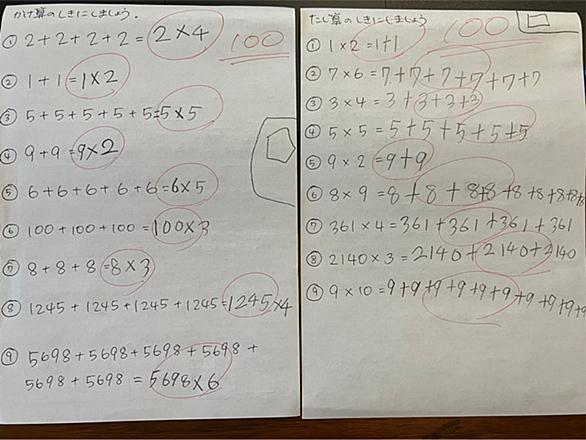 かけ算のしきにしましょう。
100
① 2+2+2+2=2×4
② 1+1=1×2
③ 5+5+5+5+5=5×5
④ 9+9=9×2
⑤ 6+6+6+6+6=6×5
⑥ 100+100+100=100×3
⑦ 8+8+8=8×3
⑧ 1245+1245+1245+1245=1245×4
⑨ 5698+5698+5698+5698+
5698+5698=5698×6
たし算のしきにしましょう
100
① 1×2=1+1
② 7×6=7+7+7+7+7+7
③ 3×4=3+3+3+3
④ 5×5=5+5+5+5+5
⑤ 9×2=9+9
⑥ 8×9=8+8+8+8+8+8+8+8+8
⑦ 361×4=361+361+361+361
⑧ 2140×3=2140+2140+2140
⑨ 9×10=9+9+9+9+9+9+9+9+9+9